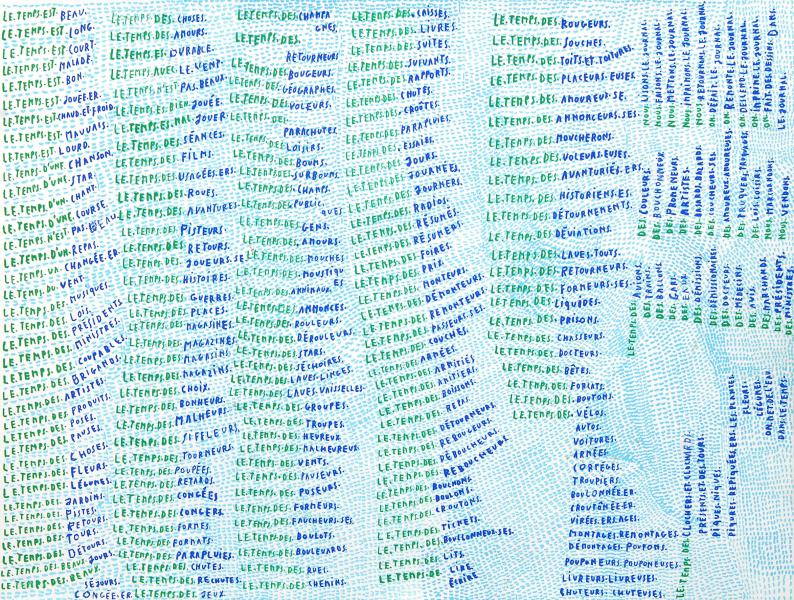 LE.TEMPS.EST. BEAU.
LE.TEMPS.EST. LONG.
LE.TEMPS.EST. COURT.
LE.TEMPS.EST. MALADE.
LE.TEMPS.EST. BON.
LE.TEMPS.EST. JOUÉ.E.ER.
LE.TEMPS.EST. CHAUD.ET.FROID.
LE.TEMPS.EST. MAUVAIS.
LE.TEMPS.EST. LOURD.
LE.TEMPS.D'UNE. CHANSON.
LE.TEMPS.D'UNE. STAR.
LE.TEMPS.D'UN. CHANT.
LE.TEMPS.D'UNE. COURSE.
LE.TEMPS.N'EST. PAS.BEAU.
LE.TEMPS.D'UN. REPAS.
LE.TEMPS.VA. CHANGÉE.ER.
LE.TEMPS.DU. VENT.
LE.TEMPS.DES. MUSIQUES.
LE.TEMPS.DES. LOIS.
LE.TEMPS.DES. PRÉSIDENTS.
LE.TEMPS.DES. MINISTRES.
LE.TEMPS.DES. COUPABLES.
LE.TEMPS.DES. BRIGANDS.
LE.TEMPS.DES. ARTISTES.
LE.TEMPS.DES. PRODUITS.
LE.TEMPS.DES. POSES.
LE.TEMPS.DES. PAUSES.
LE.TEMPS.DES. CHOSES.
LE.TEMPS.DES. FLEURS.
LE.TEMPS.DES. LÉGUMES.
LE.TEMPS.DES. JARDINS.
LE.TEMPS.DES. PISTES.
LE.TEMPS.DES. RETOURS.
LE.TEMPS.DES. TOURS.
LE.TEMPS.DES. DÉTOURS.
LE.TEMPS.DES.BEAUX. JOURS.
LE.TEMPS.DES.BEAUX.
SÉJOURS.
CONGÉE.ER.
LE.TEMPS.DES. CHOSES.
LE.TEMPS.DES. AMOURS.
LE.TEMPS.EST. DURABLE.
LE.TEMPS.AVEC. LE.VENT.
LE.TEMPS.N'EST. PAS.BEAUX.
LE.TEMPS.EST.BIEN. JOUÉE.
LE.TEMPS.EST.MAL. JOUER.
LE.TEMPS.DES. SÉANCES.
LE.TEMPS.DES. FILMS.
LE.TEMPS.DES. USAGÉES.ERS.
LE.TEMPS.DES. ROUES.
LE.TEMPS.DES. AVANTURES.
LE.TEMPS.DES. PISTEURS.
LE.TEMPS.DES. RETOURS.
LE.TEMPS.DES. JOUEURS.SE.
LE.TEMPS.DES. HISTOIRES.
LE.TEMPS.DES. GUERRES.
LE.TEMPS.DES. PLACES.
LE.TEMPS.DES. MAGASINES.
LE.TEMPS.DES. MAGAZINES.
LE.TEMPS.DES. MAGASINS.
LE.TEMPS.DES. MAGAZINS.
LE.TEMPS.DES. CHOIX.
LE.TEMPS.DES. BONHEURS.
LE.TEMPS.DES. MALHEURS.
LE.TEMPS.DES. SIFFLEURS.
LE.TEMPS.DES. TOURNEURS.
LE.TEMPS.DES. POUPÉES.
LE.TEMPS.DES. RETARDS.
LE.TEMPS.DES. CONGÉES.
LE.TEMPS.DES. CONGERS.
LE.TEMPS.DES. FORMES.
LE.TEMPS.DES. FORMATS.
LE.TEMPS.DES. PARAPLUIES.
LE.TEMPS.DES. CHUTES.
LE.TEMPS.DES. RECHUTES.
LE.TEMPS.DES. JEUX.
LE.TEMPS.DES. CHAMPA
GNES.
LE.TEMPS.DES.
RETOURNEURS
LE.TEMPS.DES. BOUGEURS.
LE.TEMPS.DES. GÉOGRAPHES.
LE.TEMPS.DES. VOLEURS.
LE.TEMPS.DES.
PARACHUTES.
LE.TEMPS.DES. LOISIRS.
LE.TEMPS.DES. BOUMS.
LE.TEMPS.DES. SURBOUMS.
LE.TEMPS.DES. CHAMPS.
LE.TEMPS.DES. PUBLIC
QUES.
LE.TEMPS.DES. GENS.
LE.TEMPS.DES. AMOURS.
LE.TEMPS.DES. MOUCHES
LE.TEMPS.DES. MOUSTIQU
ES
LE.TEMPS.DES. ANIMAUX.
LE.TEMPS.DES. ANNONCES.
LE.TEMPS.DES. ROULEURS.
LE.TEMPS.DES. DÉROULEURS.
LE.TEMPS.DES. STARS.
LE.TEMPS.DES. SÉCHOIRES.
LE.TEMPS.DES. LAVES.LINGES.
LE.TEMPS.DES. LAVES.VAISSELLES.
LE.TEMPS.DES. GROUPES.
LE.TEMPS.DES. TROUPES.
LE.TEMPS.DES. HEUREUX.
LE.TEMPS.DES. MALHEUREUX.
LE.TEMPS.DES. VENTS.
LE.TEMPS.DES. PAUSEURS.
LE.TEMPS.DES. POSEURS
LE.TEMPS.DES. FORMEURS.
LE.TEMPS.DES. FAUCHEURS.SES.
LE.TEMPS.DES. BOULOTS.
LE.TEMPS.DES. BOULEVARDS.
LE.TEMPS.DES. RUES.
LE.TEMPS.DES. CHEMINS.
LE.TEMPS.DES. CAISSES.
LE.TEMPS.DES. LIVRES.
LE.TEMPS.DES. SUITES.
LE.TEMPS.DES. SUIVANTS.
LE.TEMPS.DES. RAPPORTS.
LE.TEMPS.DES. CHUTES.
LE.TEMPS.DES. CROÛTES.
LE.TEMPS.DES. PARAPLUIES.
LE.TEMPS.DES. ESSAIES.
LE.TEMPS.DES. JOURS.
LE.TEMPS.DES. JOUANÉES.
LE.TEMPS.DES. JOURNERS.
LE.TEMPS.DES. RADIOS.
LE.TEMPS.DES. RÉSUMÉS.
LE.TEMPS.DES. RÉSUMERS.
LE.TEMPS.DES. FOIRES.
LE.TEMPS.DES. PRIX.
LE.TEMPS.DES. MONTEURS.
LE.TEMPS.DES. DÉMONTEURS.
LE.TEMPS.DES. REMONTEURS.
LE.TEMPS.DES. PASSEURS.SES.
LE.TEMPS.DES. COUCHES.
LE.TEMPS.DES. ARMÉES.
LE.TEMPS.DES. AMITIÉS
LE.TEMPS.DES. AMITIERS.
LE.TEMPS.DES. BOISSONS.
LE.TEMPS.DES. REINS.
LE.TEMPS.DES. DÉTOURNEURS.
LE.TEMPS.DES. REBOUCEURS.
LE.TEMPS.DES. DÉBOUCHEURS.
LE.TEMPS.DES. REBOUCHEURS.
LE.TEMPS.DES. BOUCHONS.
LE.TEMPS.DES. BOULONS.
LE.TEMPS.DES. CROUTONS.
LE.TEMPS.DES. TICKETS.
LE.TEMPS.DES. BOUSCONNEURS.SES.
LE.TEMPS.DES. LITS.
LE.TEMPS.DE. LIRE.
ÉCRIRE
LE.TEMPS.DES. ROUGEURS.
LE.TEMPS.DES. SOUCHES.
LE.TEMPS.DES. TOITS.ET.TOITURES.
LE.TEMPS.DES. PLACEURS.EUSES.
LE.TEMPS.DES. AMOUREUX.SE.
LE.TEMPS.DES. ANNONCEURS.SES.
LE.TEMPS.DES. MOUCHERONS.
LE.TEMPS.DES. VOLEURS.EUSES.
LE.TEMPS.DES. AVANTURIÉS.ERS.
LE.TEMPS.DES. HISTORIENS.ES.
LE.TEMPS.DES. DÉTOURNEMENTS.
LE.TEMPS.DES. DÉVIATIONS.
LE.TEMPS.DES. LAVES.TOUTS.
LE.TEMPS.DES. RETOURNEURS.
LE.TEMPS.DES. FORMEURS.SES.
LE.TEMPS.DES. LIQUIDES.
LE.TEMPS.DES. PRISONS.
LE.TEMPS.DES. CHASSEURS.
LE.TEMPS.DES. DOCTEURS.
LE.TEMPS.DES. BÊTES.
LE.TEMPS.DES. FORÇATS.
LE.TEMPS.DES. BOUTONS.
LE.TEMPS.DES. VÉLOS.
AUTOS.
VOITURES.
ARMÉES.
CORTÈGES.
TROUPIERS.
BOULONNÉE.ER.
CROUTÔNÉE.ER.
VIRÉES.ERS.AGES.
MONTAGES.REMONTAGES.
DÉMONTAGES. POUPONS.
POUPONEURS.POUPONEUSES.
LIVREURS.LIVREUSES.
CHUTEURS. CHUTEUSES.
NOUS. LISONS.LE.JOURNAL.
NOUS. FAISONS.LE.JOURNAL.
NOUS. METTONS.LE.JOURNAL.
NOUS. IMPRIMONS.LE.JOURNAL.
NOUS. RETOURNONS.LE.JOURNAL.
ON. REFAIT.LE.JOURNAL.
ON. REMONTE.LE.JOURNAL.
ON. DESCEND.LE.JOURNAL.
ON. IMPRIME.LE.JOURNAL.
ON. FAIT.DES.DESSINS. DANS.
LE.JOURNAL.
DES. COULEURS.
DES. BOUCHONNEUX.
DES. PROMENEURS
DES. ARTISTES.
DES. BAVARDS.BAVARDES.
DES. COUCHEURS.SES.
DES. AMOUREUX.AMOUREUSES.
DES. LOISIRS.
NOUS. MARCHANDONS.
NOUS. VENDONS.
LE.TEMPS.DES. AVIONS.
DES. TRAINS.
DES. BALLONS.
DES. REPAS.
DES. EAUX.
DES. DÉMISSIONS.
DES. DÉMISSIONNAIRES.
DES. DOCTEURS.
DES. MÉDECINS.
DES. AVIS.
DES. MARCHANDS.
DES. PRÉSIDENTS.
DES. MINISTRES.
LE.TEMPS.DES. CLOCHERS.ET.CLOCHARDS.
PRÉSENTS.ET.DES.JOURS.
PIQUES.NIQUES.
PIQURES.REPIQUÉES.ERS.LES.PLANTES.
FLEURS.
LÉGUMES.
ON.MET.DE.L'EAU.
DANS.LE.TEMPS.